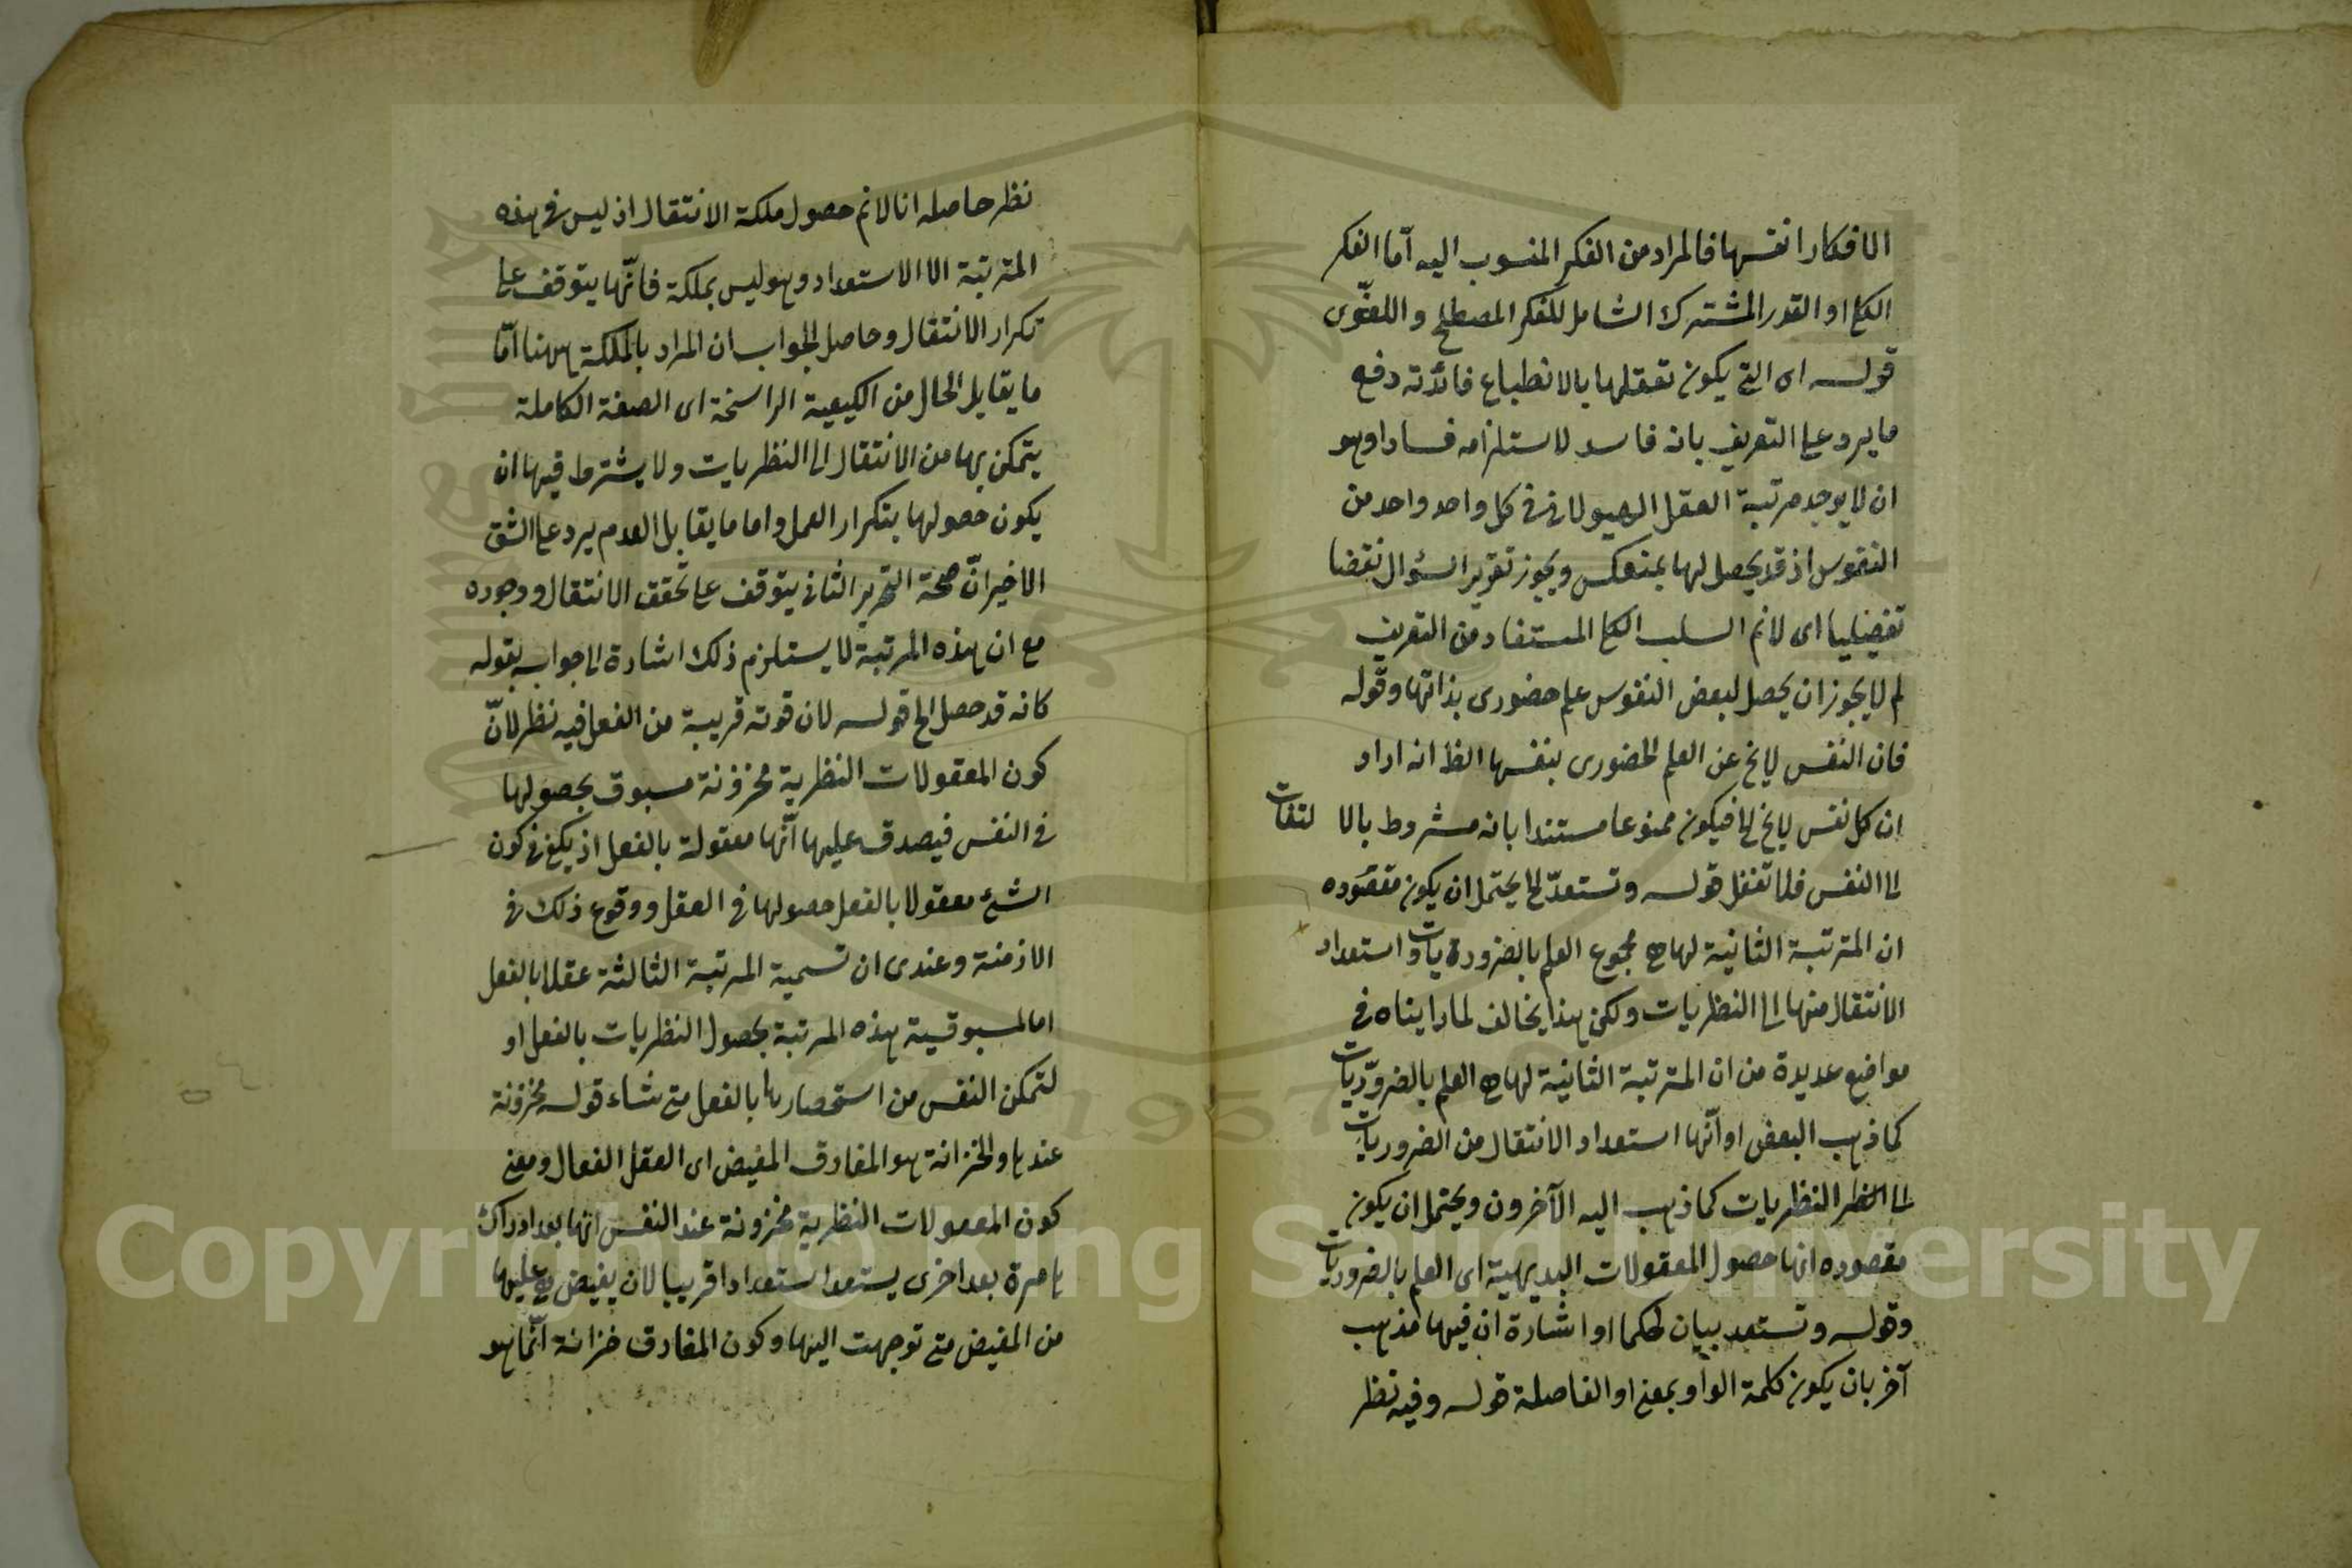 الافكار انفسها فالمراد من الفكر المنسوب اليه اما الفكر
الكلى او القدر المشترك الشامل للفكر المصطلح واللغوى
قوله اى التى يكون تعقلها بالانطباع فائدته دفع
ما يرد على التعريف بانه فاسد لاستلزامه فسادا وهو
ان لا يوجد مرتبة العقل الهيولانى فى كل واحد واحد من
النفوس اذ قد يحصل لها بمنعكس ويجوز تقرير السؤال نقضا
تفضيليا اى لانم السلب الكلى المستفاد من التعريف
لم لا يجوز ان يحصل لبعض النفوس علم حضورى بذاتها وقوله
فان النفس لا يخ عن العلم الحضورى بنفسها الظ انه اراد
ان كل نفس لا يخ الخ فيكون ممنوعا مستندا بانه مشروط بالالتفات
الى النفس فلا تغفل قوله وتستعد الخ يحتمل ان يكون مقصوده
ان المرتبة الثانية لها هى مجموع العلم بالضروريات واستعداد
الانتقال منها الى النظريات ولكن هذا يخالف لما رايناه فى
مواضع عديدة من ان المرتبة الثانية لها هى العلم بالضروريات
كما ذهب البعض او انها استعداد الانتقال من الضروريات
الى النظريات كما ذهب اليه الآخرون ويحتمل ان يكون
مقصوده انها حصول المعقولات البديهية اى العلم بالضروريات
وقوله وتستعد بيان لحكمها او اشارة ان فيها مذهب
آخر بان يكون كلمة الواو بمعنى او الفاصلة قوله وفيه نظر
نظر حاصله انا لانم حصول ملكة الانتقال اذ ليس فى هذه
المرتبة الا الاستعداد وهو ليس بملكة فانها يتوقف على
تكرار الانتقال وحاصل الجواب ان المراد بالملكة ههنا اما
ما يقابل الحال من الكيفية الراسخة اى الصفة الكاملة
يتمكن بها من الانتقال الى النظريات ولا يشترط فيها ان
يكون حصولها بتكرار العمل واما ما يقابل العدم يرد على الشق
الاخير ان صحة التحرير الثانى يتوقف على تحقق الانتقال ووجوده
مع ان هذه المرتبة لا يستلزم ذلك اشارة الى جواب بقوله
كانه قد حصل الخ قوله لان قوته قريبة من الفعل فيه نظر لان
كون المعقولات النظرية مخزونة مسبوق بحصولها
فى النفس فيصدق عليها انها معقولة بالفعل اذ يكفى فى كون
الشئ معقولا بالفعل حصولها فى العقل ووقوع ذلك فى
الازمنة وعندى ان تسمية المرتبة الثالثة عقلا بالفعل
اما لمسبوقية هذه المرتبة بحصول النظريات بالفعل او
لتمكن النفس من استحضارها بالفعل متى شاء قوله مخزونة
عندها والخزانة هو المفارق المفيض اى العقل الفعال ومعنى
كون المعقولات النظرية مخزونة عند النفس انها بعد ادراك
ها مرة بعد اخرى يستعد استعدادا قريبا لان يفيض هى عليها
من المفيض متى توجهت اليها وكون المفارق خزانة انما هو
Copyright © King Saud University
1957